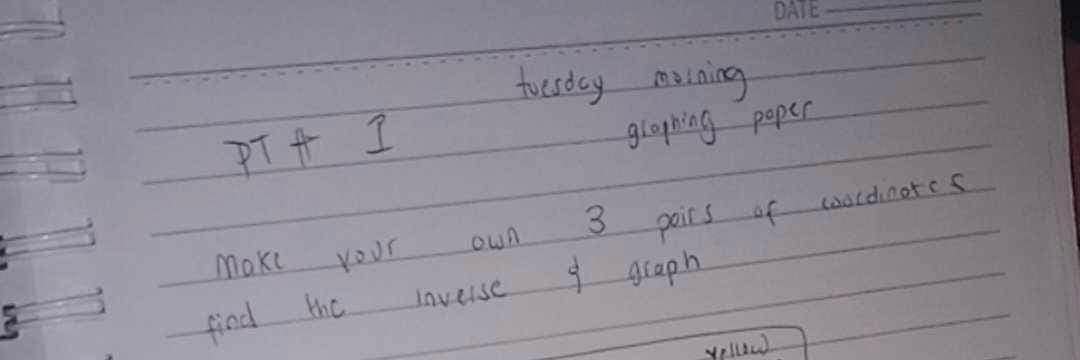 DATE
tuesday morning
PT # I
graphing paper
Make your own 3 pairs of coordinates
find the inverse & graph
yellow